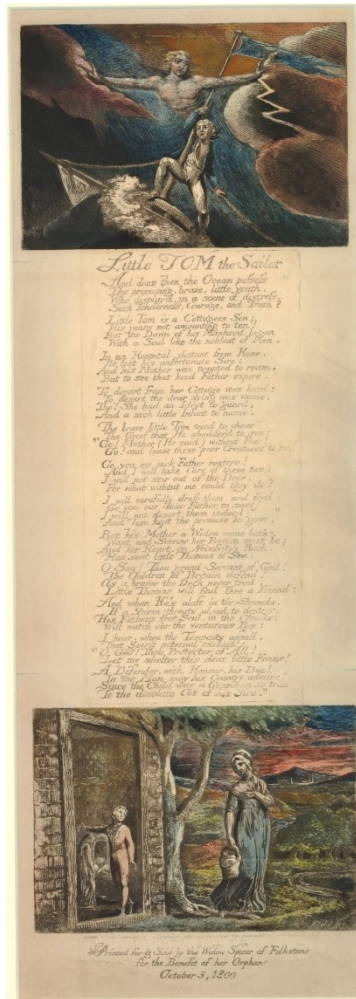 Little TOM the Sailor
And does then the Ocean possess
The promising, brave, little youth,
Who display'd in a scene of distress,
Such Tenderness, Courage, and Truth?
Little Tom is a Cottagers Son;
His years not amounting to ten!
But the Dawn of his Manhood begun
With a Soul like the noblest of Men.
In an Hospital distant from Home,
He lost his unfortunate Sire;
And his Mother was tempted to roam,
But to see that kind Father expire.
To depart from her Cottage was hard!
To desert the dear dying was worse;
She had an Ideot to guard,
And a sick little Infant to nurse.
The brave little Tom tried to chear
The Grief that He shudder'd to see;
Go! Mother! (He said) without fear
Go! and leave these poor Creatures to me.
Go you my sick Father restore!
And I will take Care of these two:
I will not stir out of the Door,
For what without me could they do?
I will carefully dress them, and feed:
Go you our dear Father to save!
I will not desert them indeed!
And Tom kept the promise He gave.
But his Mother a Widow came back;
Want and Sorrow her Portion must be;
And her Heart, on Necessity's Rack,
Has sent little Thomas to Sea.
O Sea! Thou proud Servant of God!
The Children of Britain defend!
As a braver the Deck never trod
Little Thomas will find Thee a Friend:
And when He's aloft in the Shrouds,
If a Storm threats aloud to destroy,
His Fathers free Soul, in the Clouds,
Will watch o'er the venturous Boy!
I hear, when the Tempests appall,
That Spirit paternal exclaim,
O God! Thou Protector of All!
Let me shelter this dear little Frame!
A Defender, with Honour, his Due!
In the Man, may his Country admire;
Since the Child was a Guardian so true
To the desolate Cot of his Sire."
Printed for & Sold by the Widow Spicer of Folkstone
for the Benefit of her Orphans
October 5, 1800